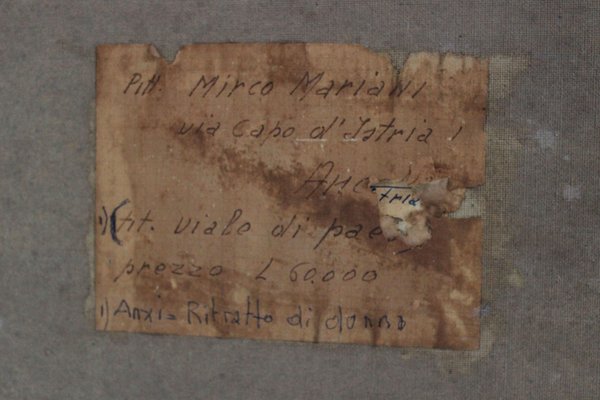 Pitt. Mirco Mariani
via Capo d'Istria 1
Anco
tria
1) tit. viale di paes
prezzo L 60.000
1) Anxi= Ritratto di donna